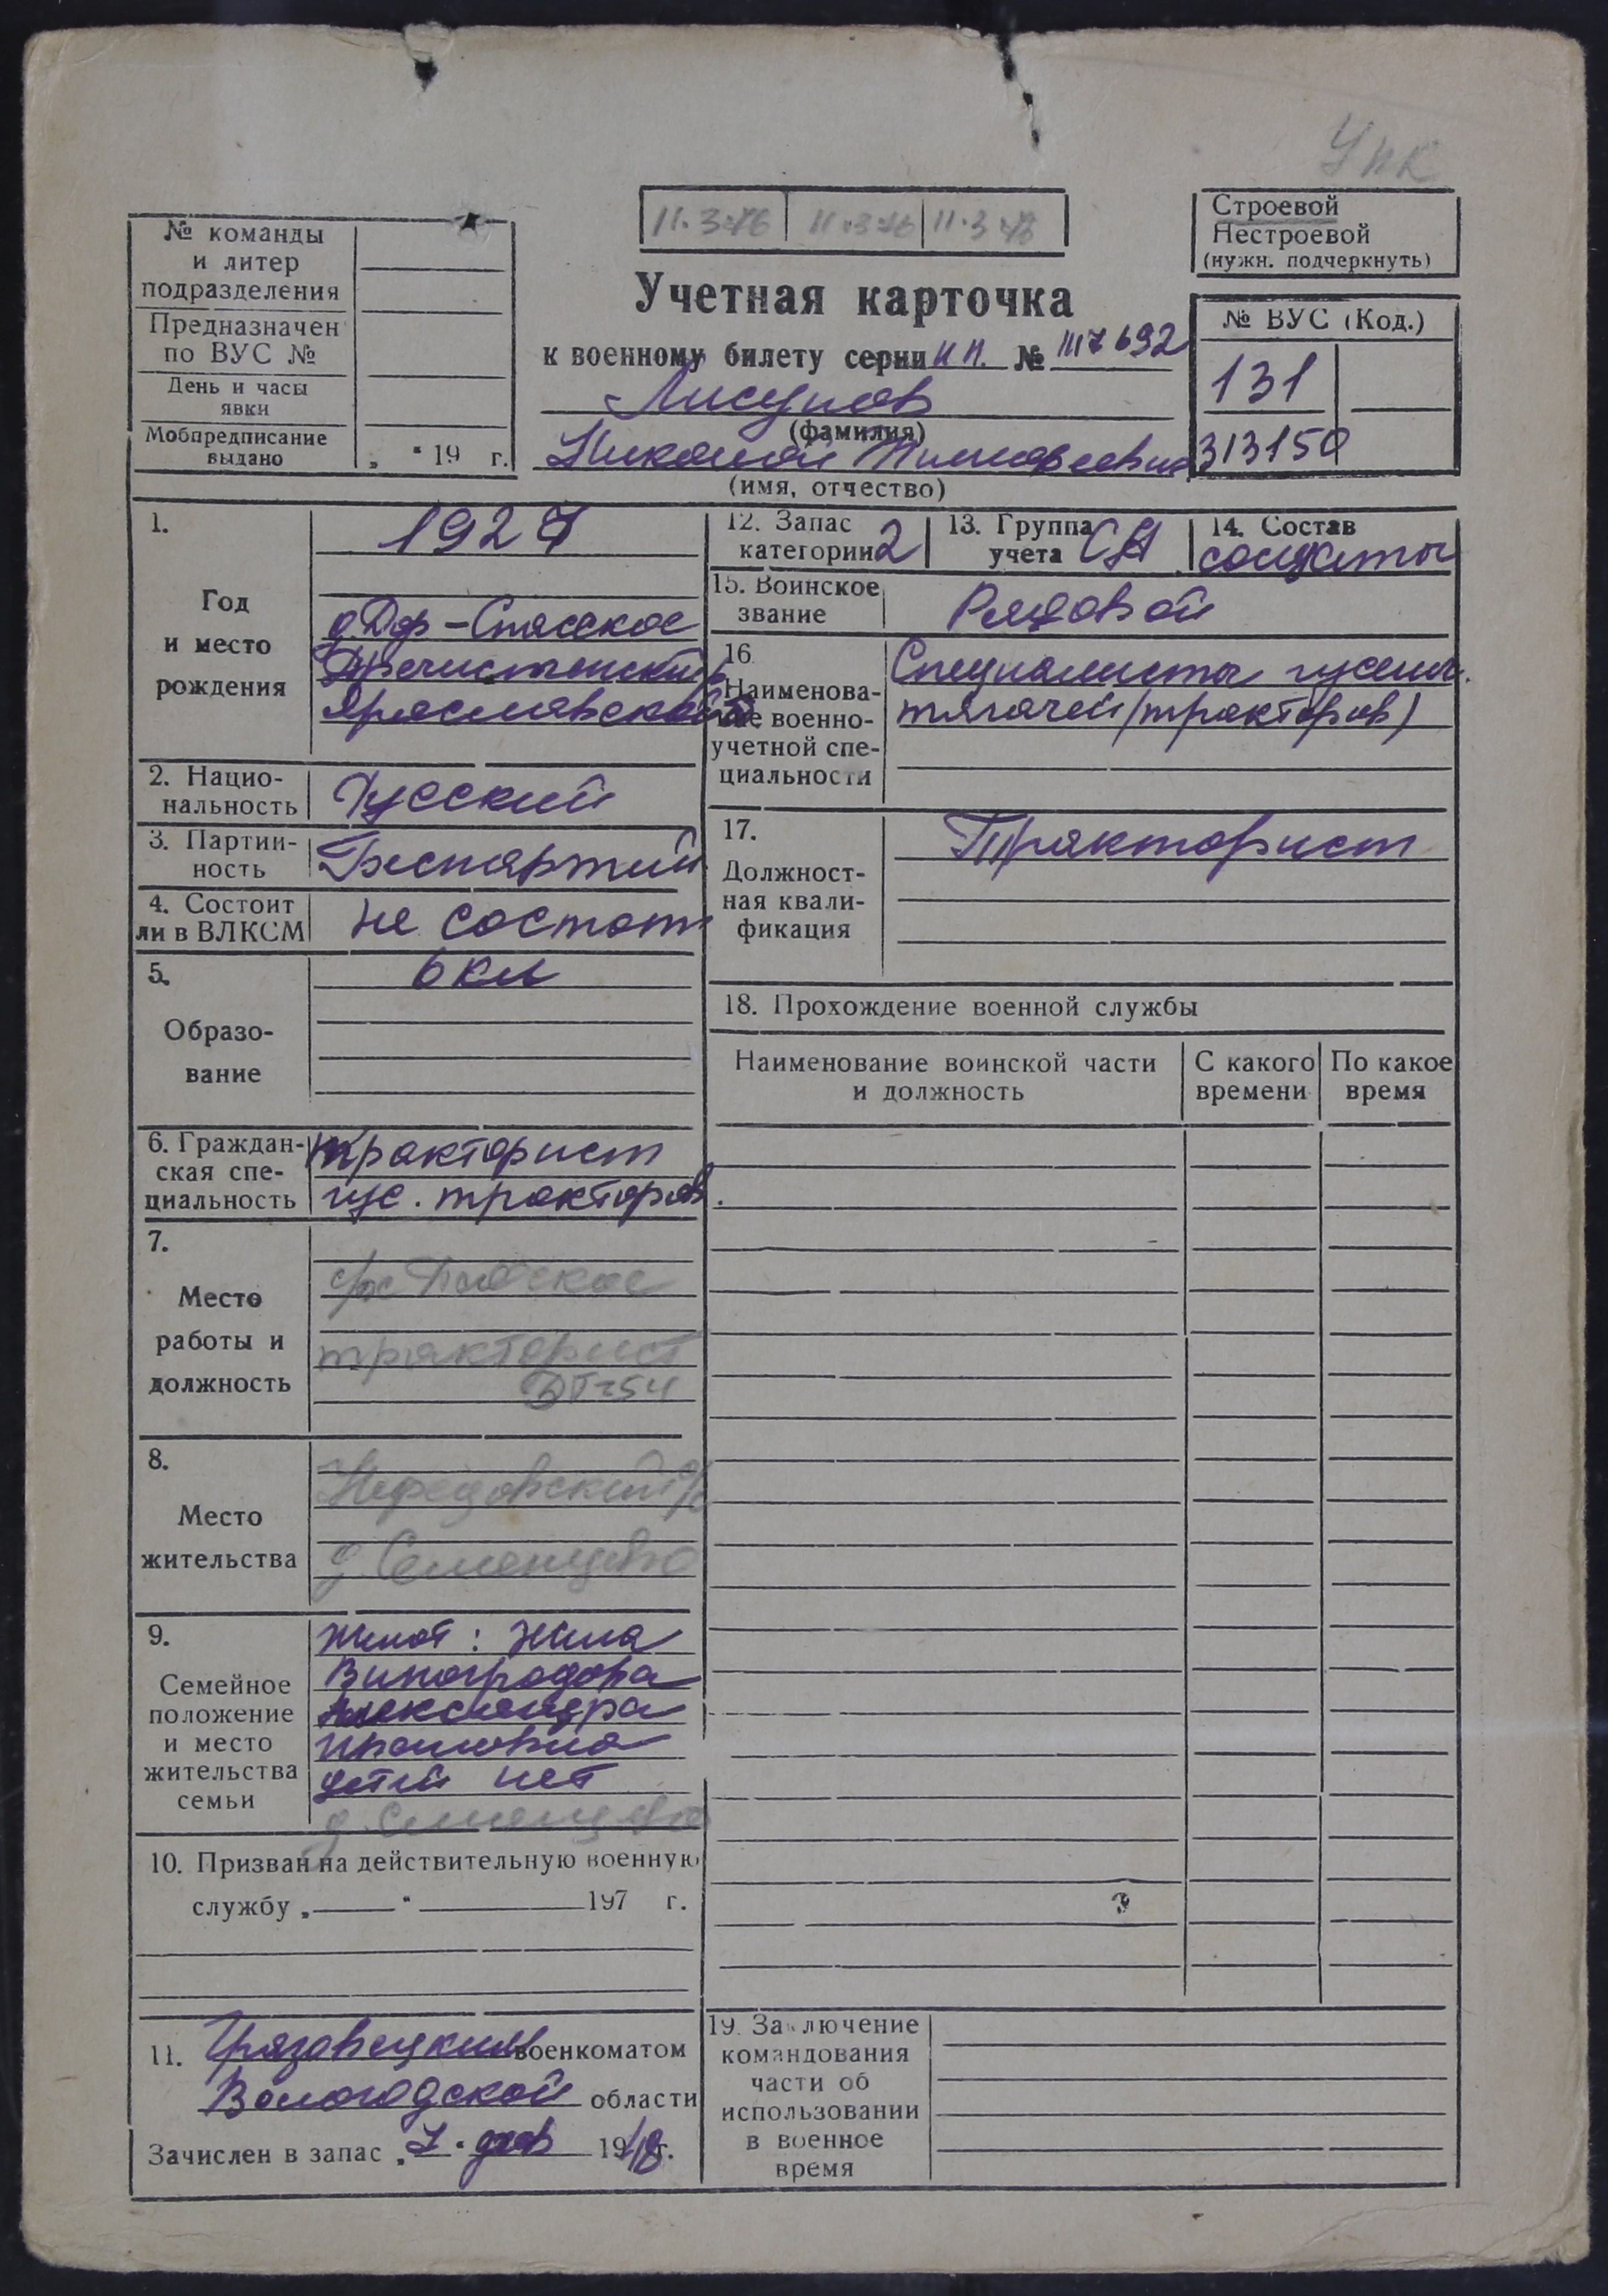 УПК
11.3.76 11.3.76 11.3.76
Строевой
Нестроевой
(нужн. подчеркнуть)
№ команды
и литер
подразделения
Предназначен
по ВУС №
День и часы
явки
Мобпредписание
выдано
„ “ 19 г.
Учетная карточка
к военному билету серии НП. № 1117692
Лисунов
(фамилия)
Николай Тимофеевич
(имя, отчество)
№ ВУС (Код.)
131
313150
1.
Год
и место
рождения
1927
д. Дор-Спасское
Пречистенский р
Ярославской о
2. Нацио-
нальность
Русский
3. Партий-
ность
Беспартий
4. Состоит
ли в ВЛКСМ
не состоит
5.
Образо-
вание
6 кл
6. Граждан-
ская спе-
циальность
тракторист
гус. тракторов.
7.
Место
работы и
должность
тракторист
ДТ-54
8.
Место
жительства
Нефедовский с/с
д. Семенцево
9.
Семейное
положение
и место
жительства
семьи
Женат: жена
Виноградова
Александра
детей нет
д. Семенцево
10. Призван на действительную военную
службу „ “ 197 г.
11. Грязовецким военкоматом
Вологодской области
Зачислен в запас „7“ 1948 г.
12. Запас
категории 2
13. Группа
учета СА
14. Состав
солдаты
15. Воинское
звание
Рядовой
16
Наименова-
ние военно-
учетной спе-
циальности
Специалисты гусенич.
тягачей (тракторов)
17.
Должност-
ная квали-
фикация
Тракторист
18. Прохождение военной службы
Наименование воинской части
и должность
С какого
времени
По какое
время
19. Заключение
командования
части об
использовании
в военное
время